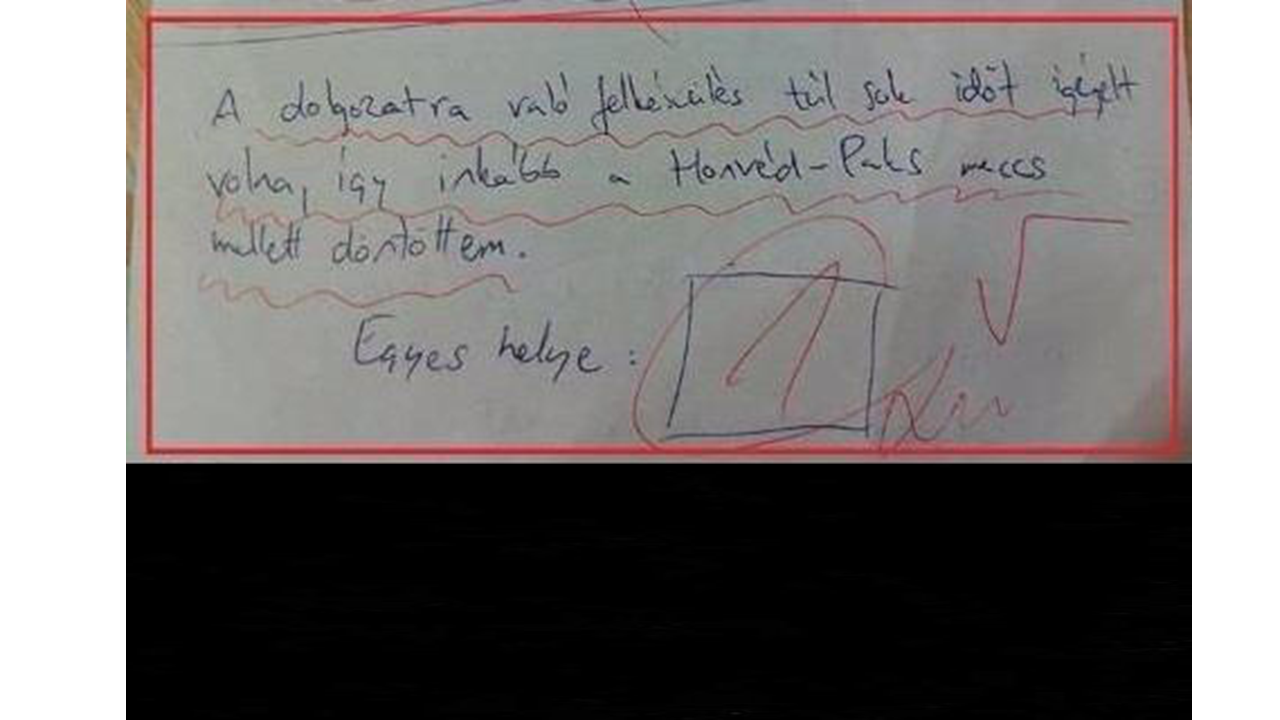 A dolgozatra való felkészülés túl sok időt igényelt
volna, így inkább a Honvéd-Paks meccs
mellett döntöttem.
Egyes helye :
1